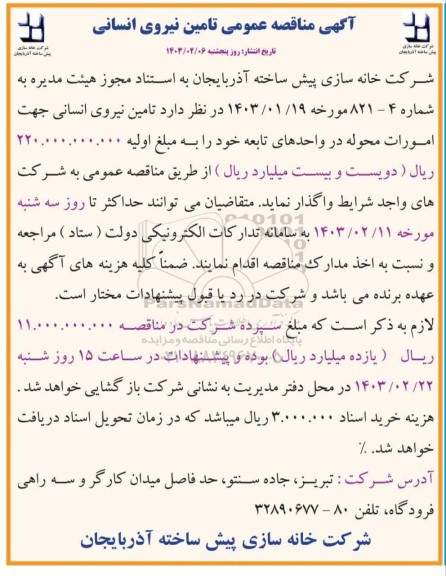 آگهی مناقصه عمومی تامین نیروی انسانی
تاریخ انتشار: روز پنجشنبه ۱۴۰۳/۰۲/۰۶
شرکت خانه سازی
پیش ساخته آذربایجان
شرکت خانه سازی
پیش ساخته آذربایجان
شرکت خانه سازی پیش ساخته آذربایجان به استناد مجوز هیئت مدیره به
شماره ۴ - ۸۲۱ مورخه ۱۹/ ۰۱/ ۱۴۰۳ در نظر دارد تامین نیروی انسانی جهت
امورات محوله در واحدهای تابعه خود را به مبلغ اولیه ۲۲۰.۰۰۰.۰۰۰.۰۰۰
ریال ( دویست و بیست میلیارد ریال ) از طریق مناقصه عمومی به شرکت
های واجد شرایط واگذار نماید. متقاضیان می توانند حداکثر تا روز سه شنبه
مورخه ۱۱/ ۰۲/ ۱۴۰۳ به سامانه تدارکات الکترونیکی دولت ( ستاد ) مراجعه
و نسبت به اخذ مدارک مناقصه اقدام نمایند. ضمناً کلیه هزینه های آگهی به
عهده برنده می باشد و شرکت در رد یا قبول پیشنهادات مختار است.
لازم به ذکر است که مبلغ سپرده شرکت در مناقصه ۱۱.۰۰۰.۰۰۰.۰۰۰
ریال ( یازده میلیارد ریال) بوده و پیشنهادات در ساعت ۱۵ روز شنبه
۲۲/ ۰۲/ ۱۴۰۳ در محل دفتر مدیریت به نشانی شرکت باز گشایی خواهد شد .
هزینه خرید اسناد ۳.۰۰۰.۰۰۰ ریال میباشد که در زمان تحویل اسناد دریافت
خواهد شد. ٪
آدرس شرکت : تبریز، جاده سنتو، حد فاصل میدان کارگر و سه راهی
فرودگاه، تلفن ۸۰ - ۳۲۸۹۰۶۷۷
شرکت خانه سازی پیش ساخته آذربایجان
ParsNamadData
پایگاه اطلاع رسانی مناقصه و مزایده